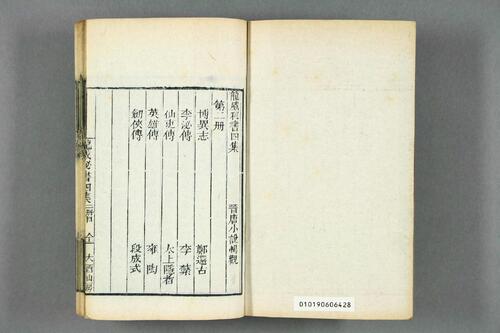 龍威秘書四集 晉唐小說暢觀
第二册
博異志 鄭還古
李泌傳 李蘩
仙吏傳 太上隱者
英雄傳 雍陶
劒俠傳 段成式
龍威秘書四集 二册 大酉山房
010190606428